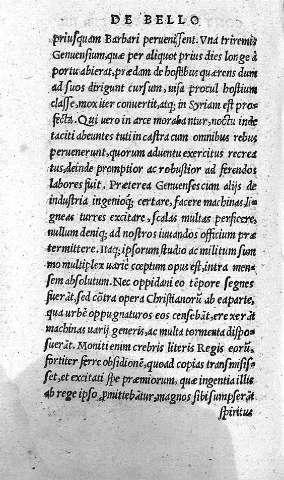 DE BELLO
priusquam Barbari peruenissent. Vna triremis
Genuensium, quæ per aliquot prius dies longè à
portu abierat, prædam de hostibus quærens dum
ad suos dirigunt cursum, uisa procul hostium
classe, mox iter conuertit, atq; in Syriam est pro=
fecta. Qui uero in arce morabantur, noctu inde
taciti abeuntes tuti in castra cum omnibus rebus
peruenerunt, quorum aduentu exercitus recrea
tus, deinde promptior ac robustior ad ferendos
labores fuit. Præterea Genuenses cum alijs de
industria ingenioq; certare, facere machinas li=
gneas turres excitare, scalas multas perficere,
nullum deniq; ad nostros iuuandos officium præ
termittere. Itaq; ipsorum studio ac militum sum
mo multiplex uarie cœptum opus est, intra men=
sem absolutum. Nec oppidani eo tēpore segnes
fuerāt, sed cōtra opera Christianorū ab ea parte,
qua urbē oppugnaturos eos censebāt, erexerāt
machinas uarij generis, ac multa tormenta dispo=
suerāt. Moniti enim crebris literis Regis eorū,
fortiter ferre obsidionē, quoad copias transmisis=
set, et excitati spe præmiorum, quæ ingentia illis
ab rege ipso ꝓmittebātur, magnos sibi sumpserāt
spiritus